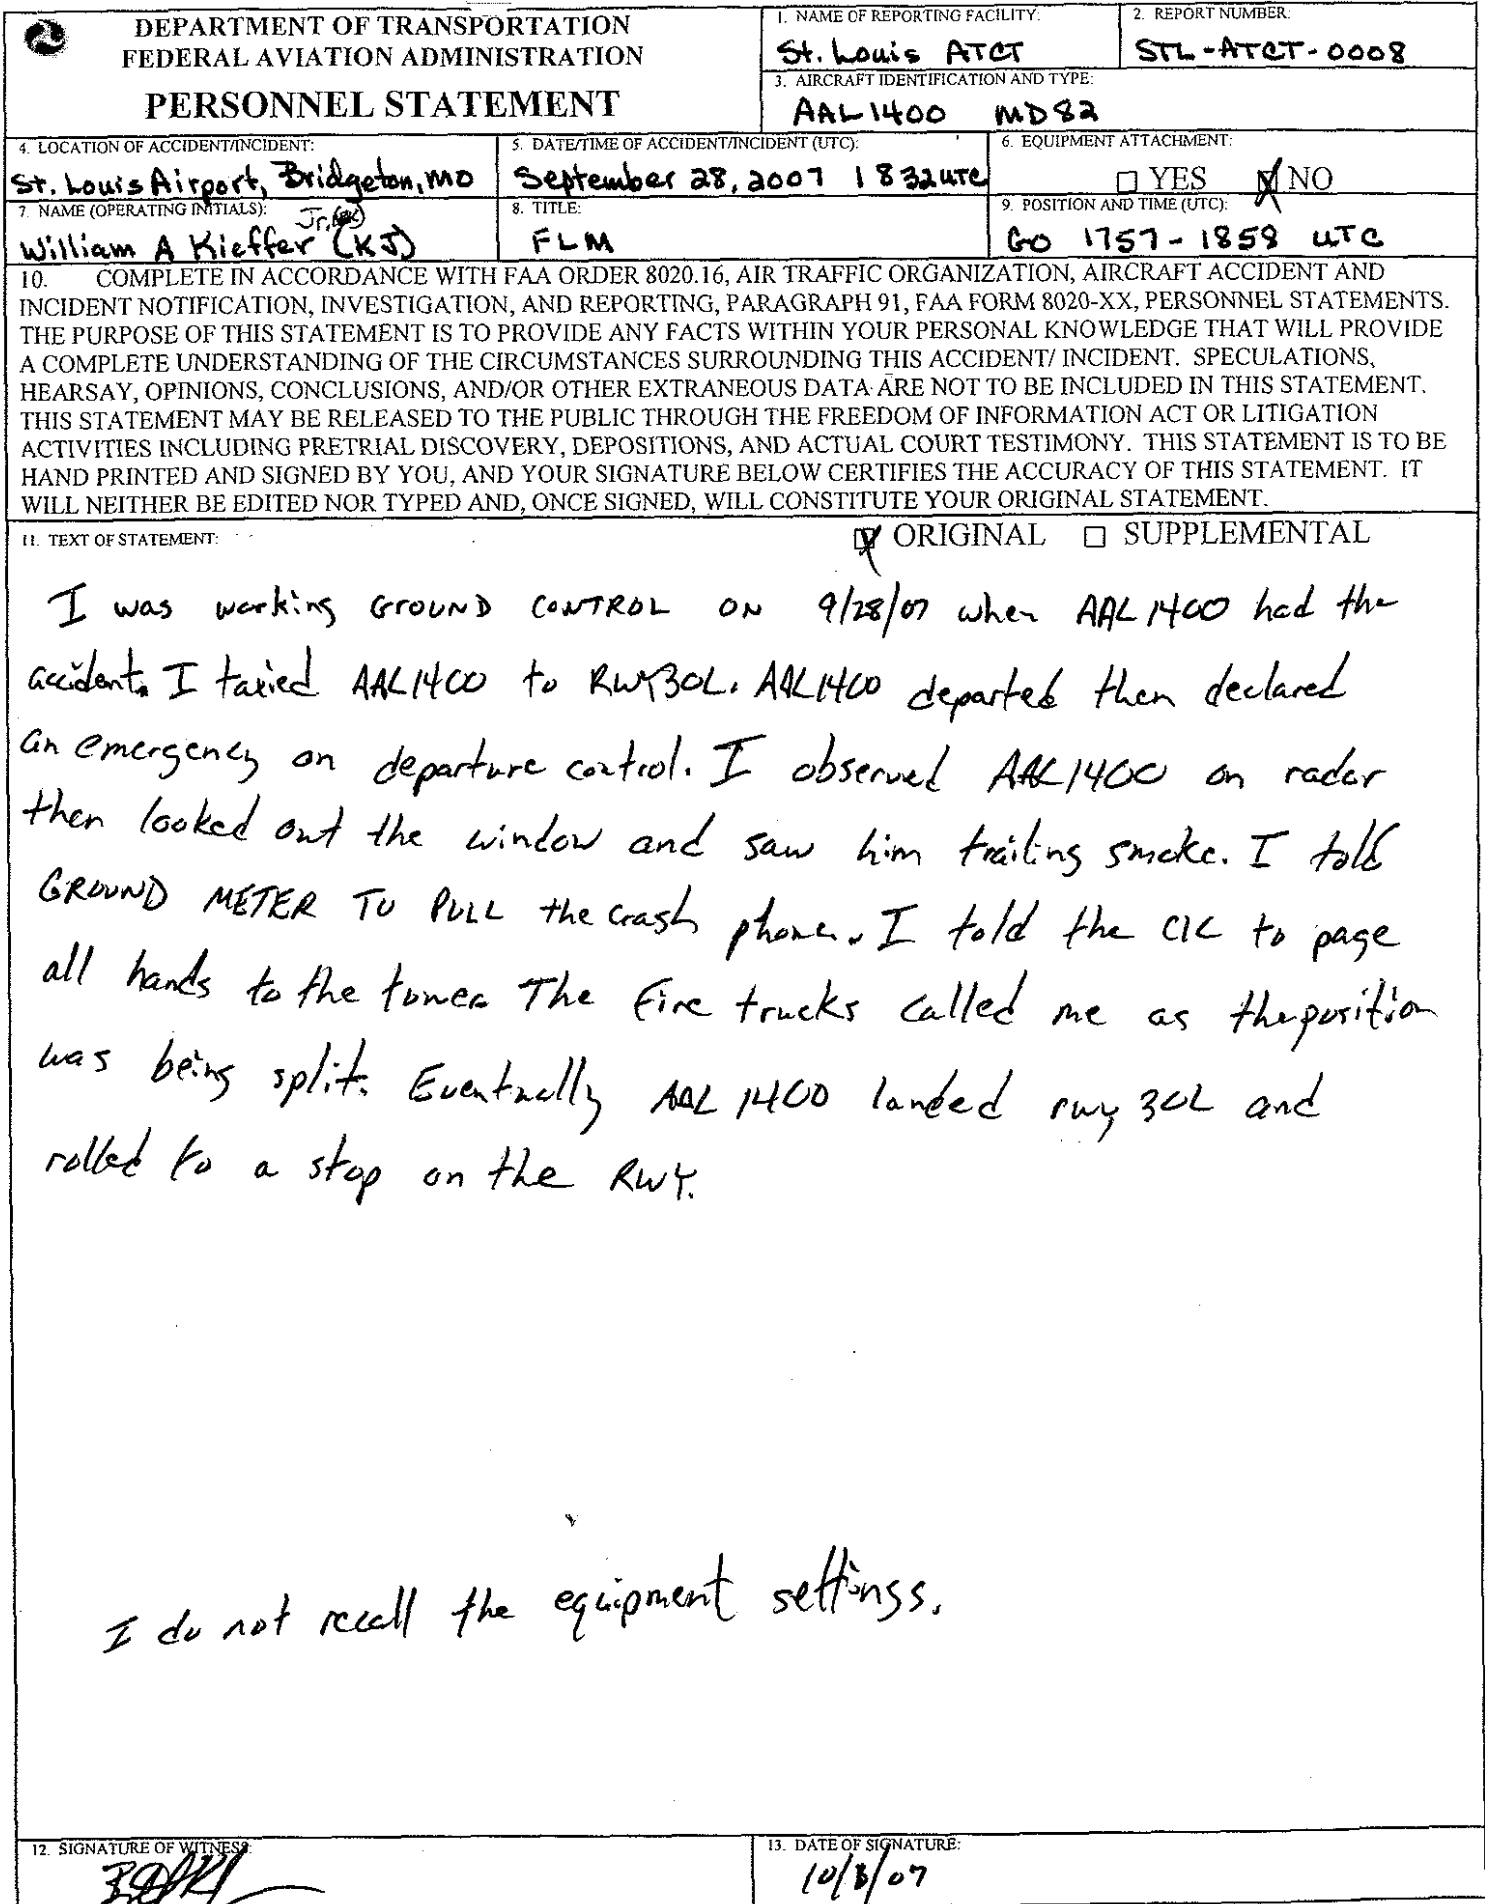 DEPARTMENT OF TRANSPORTATION
FEDERAL AVIATION ADMINISTRATION
PERSONNEL STATEMENT
1. NAME OF REPORTING FACILITY:
St. Louis ATCT
2. REPORT NUMBER:
STL-ATCT-0008
3. AIRCRAFT IDENTIFICATION AND TYPE:
AAL1400 MD82
4. LOCATION OF ACCIDENT/INCIDENT:
St. Louis Airport, Bridgeton, MO
5. DATE/TIME OF ACCIDENT/INCIDENT (UTC):
September 28, 2007 1832 UTC
6. EQUIPMENT ATTACHMENT:
YES NO
7. NAME (OPERATING INITIALS):
William A Kieffer Jr. (KJ)
8. TITLE:
FLM
9. POSITION AND TIME (UTC):
GO 1757-1858 UTC
10. COMPLETE IN ACCORDANCE WITH FAA ORDER 8020.16, AIR TRAFFIC ORGANIZATION, AIRCRAFT ACCIDENT AND
INCIDENT NOTIFICATION, INVESTIGATION, AND REPORTING, PARAGRAPH 91, FAA FORM 8020-XX, PERSONNEL STATEMENTS.
THE PURPOSE OF THIS STATEMENT IS TO PROVIDE ANY FACTS WITHIN YOUR PERSONAL KNOWLEDGE THAT WILL PROVIDE
A COMPLETE UNDERSTANDING OF THE CIRCUMSTANCES SURROUNDING THIS ACCIDENT/ INCIDENT. SPECULATIONS,
HEARSAY, OPINIONS, CONCLUSIONS, AND/OR OTHER EXTRANEOUS DATA ARE NOT TO BE INCLUDED IN THIS STATEMENT.
THIS STATEMENT MAY BE RELEASED TO THE PUBLIC THROUGH THE FREEDOM OF INFORMATION ACT OR LITIGATION
ACTIVITIES INCLUDING PRETRIAL DISCOVERY, DEPOSITIONS, AND ACTUAL COURT TESTIMONY. THIS STATEMENT IS TO BE
HAND PRINTED AND SIGNED BY YOU, AND YOUR SIGNATURE BELOW CERTIFIES THE ACCURACY OF THIS STATEMENT. IT
WILL NEITHER BE EDITED NOR TYPED AND, ONCE SIGNED, WILL CONSTITUTE YOUR ORIGINAL STATEMENT.
11. TEXT OF STATEMENT:
ORIGINAL SUPPLEMENTAL
I was working GROUND CONTROL ON 9/28/07 when AAL1400 had the
accident. I taxied AAL1400 to RWY30L. AAL1400 departed then declared
an emergency on departure control. I observed AAL1400 on radar
then looked out the window and saw him trailing smoke. I told
GROUND METER TO PULL the crash phone. I told the CIC to page
all hands to the tower. The fire trucks called me as the position
was being split. Eventually AAL 1400 landed rwy 30L and
rolled to a stop on the RWY.
I do not recall the equipment settings.
12. SIGNATURE OF WITNESS:
13. DATE OF SIGNATURE:
10/8/07